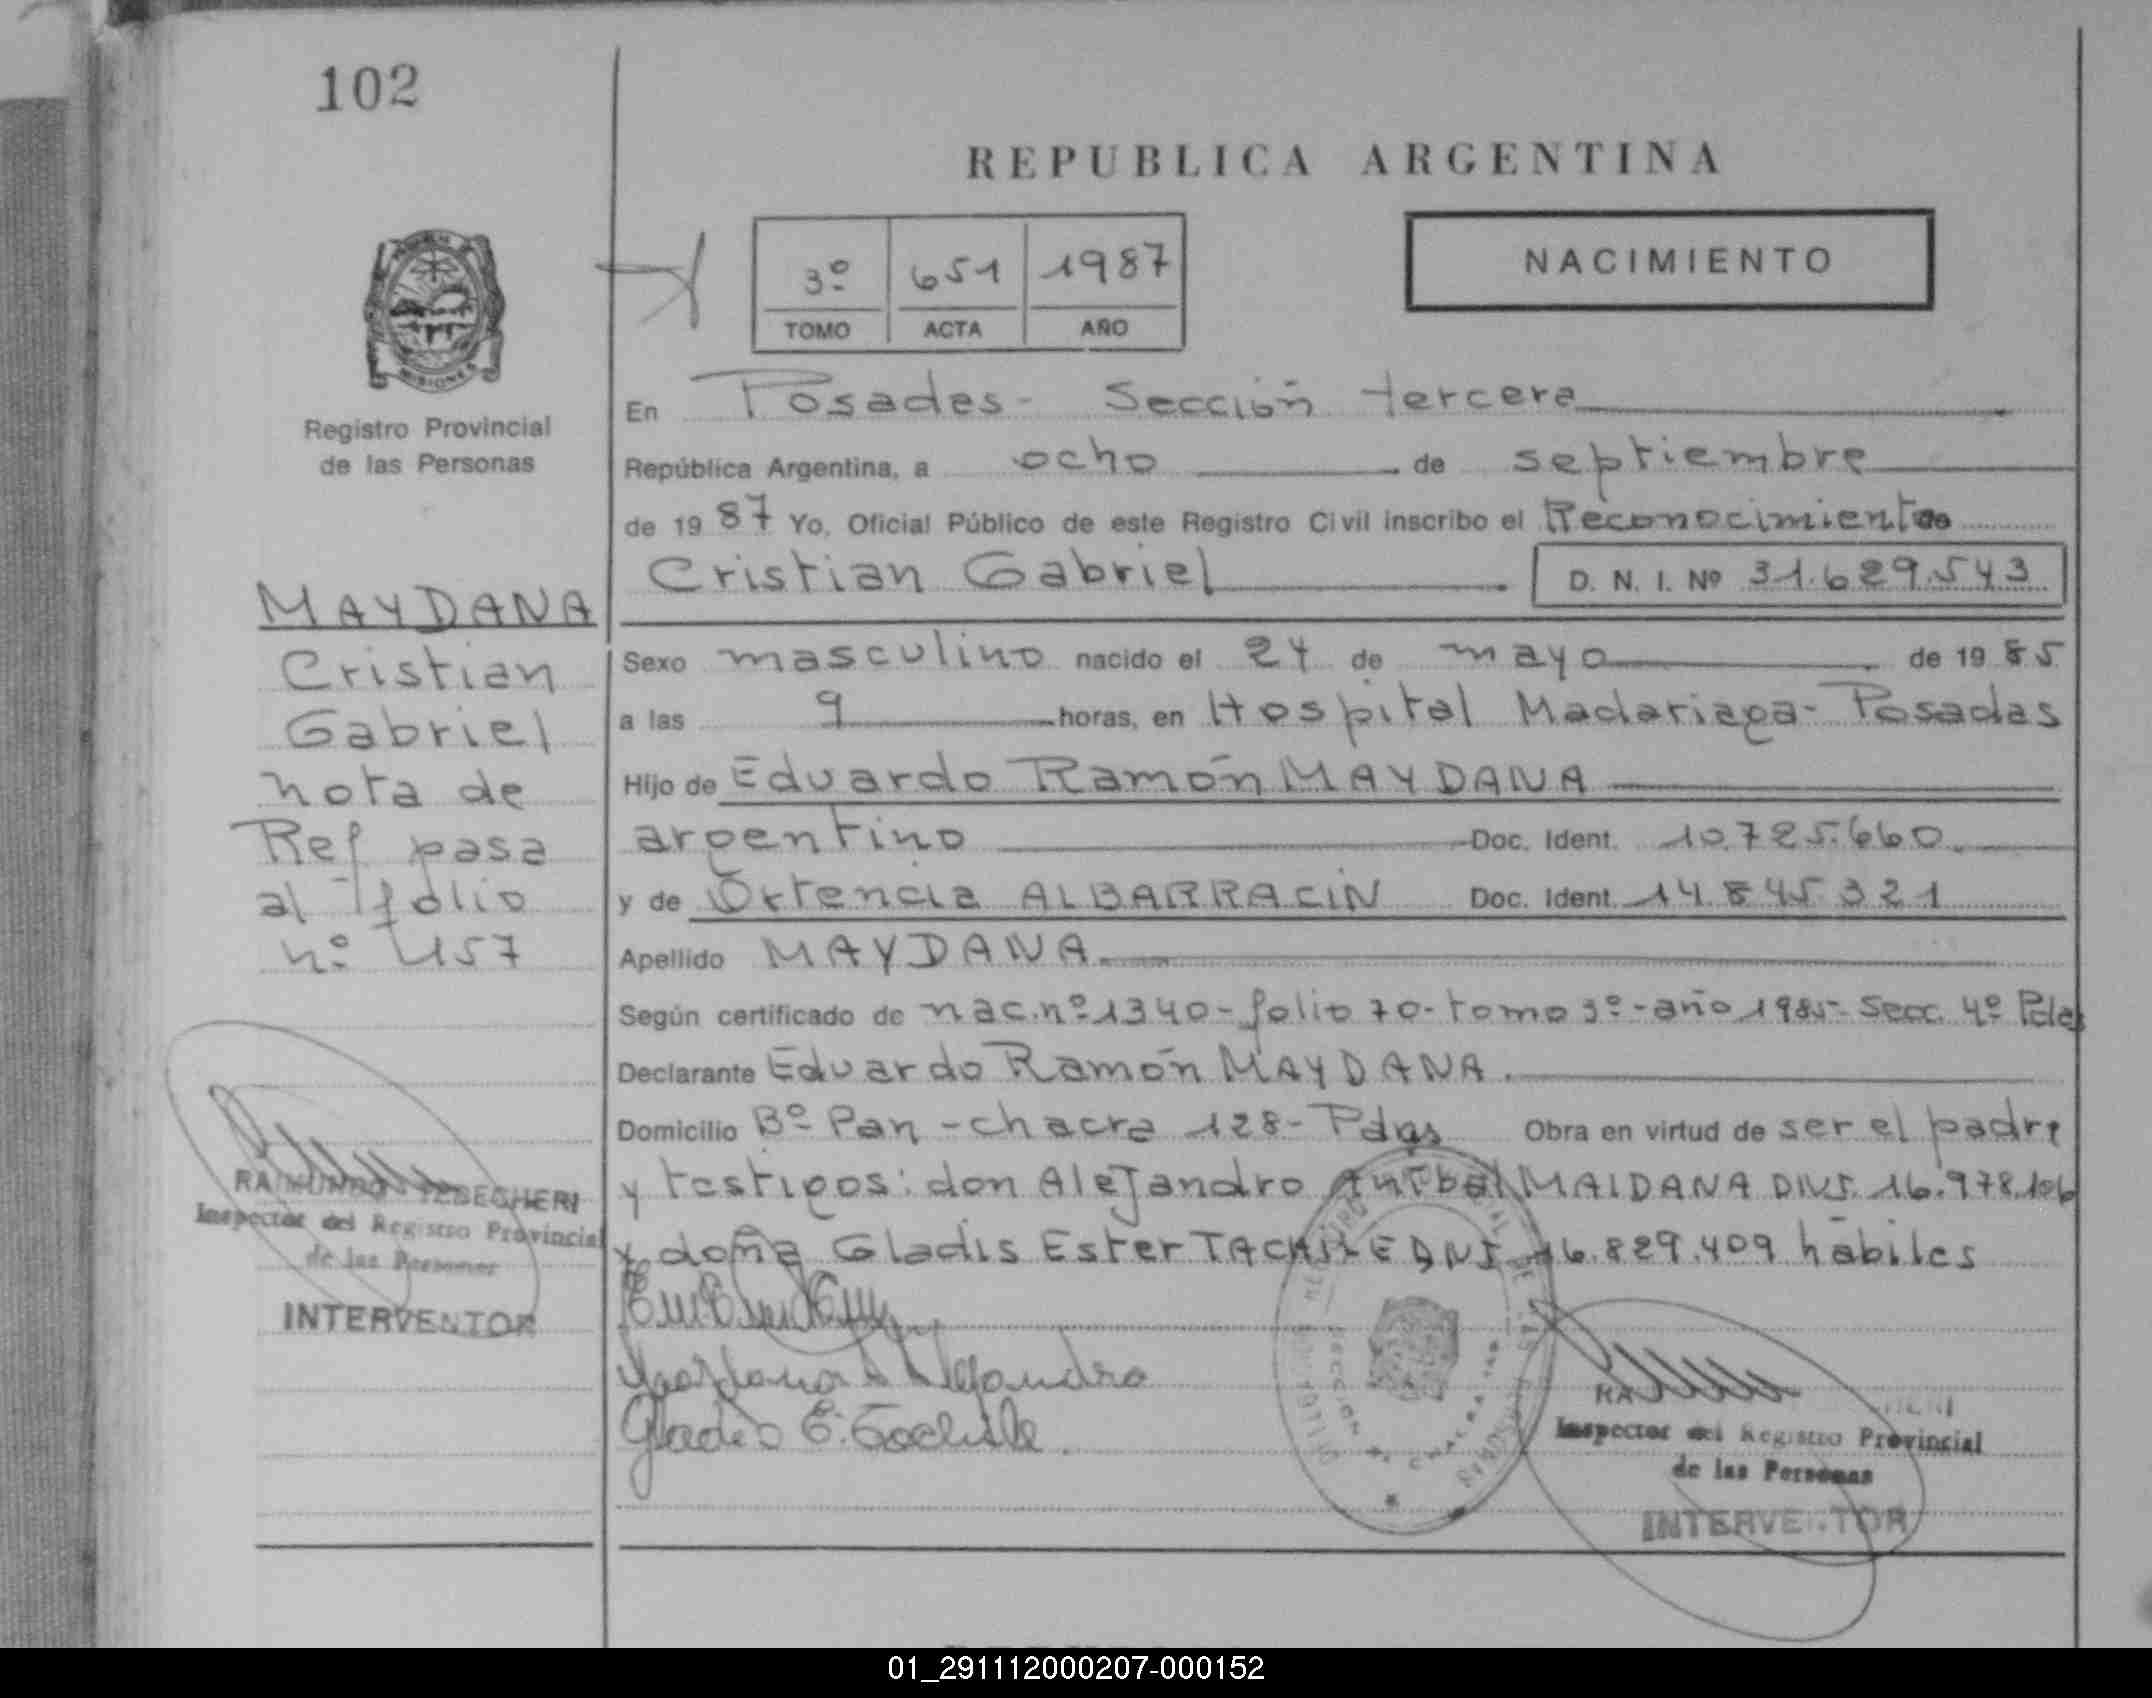 102
REPUBLICA ARGENTINA
3º 651 1987
TOMO ACTA AÑO
NACIMIENTO
MISIONES
Registro Provincial
de las Personas
En Posadas - Sección tercera
República Argentina, a ocho de septiembre
de 1987 Yo, Oficial Público de este Registro Civil inscribo el Reconocimiento de
Cristian Gabriel D. N. I. Nº 31.629.543
Sexo masculino nacido el 24 de mayo de 1985
a las 9 horas, en Hospital Madariaga - Posadas
Hijo de Eduardo Ramón MAYDANA
argentino Doc. Ident. 10.725.660
y de Ortencia ALBARRACIN Doc. Ident. 14.845.321
Apellido MAYDANA
Según certificado de nac. nº 1340 - folio 70 - tomo 3º - año 1985 - Secc. 4º Pdas
Declarante Eduardo Ramón MAYDANA.
Domicilio Bº Pan - chacra 128 - Pdas Obra en virtud de ser el padre
y testigos: don Alejandro Anibal MAIDANA DNI. 16.978.106
y doña Gladis Ester TACHILE DNI 16.829.409 hábiles
MAYDANA
Cristian
Gabriel
nota de
Ref pasa
al folio
nº 157
Inspector del Registro Provincial
de las Personas
INTERVENTOR
Alejandro
Gladis E.
Inspector del Registro Provincial
de las Personas
INTERVENTOR
01_291112000207-000152